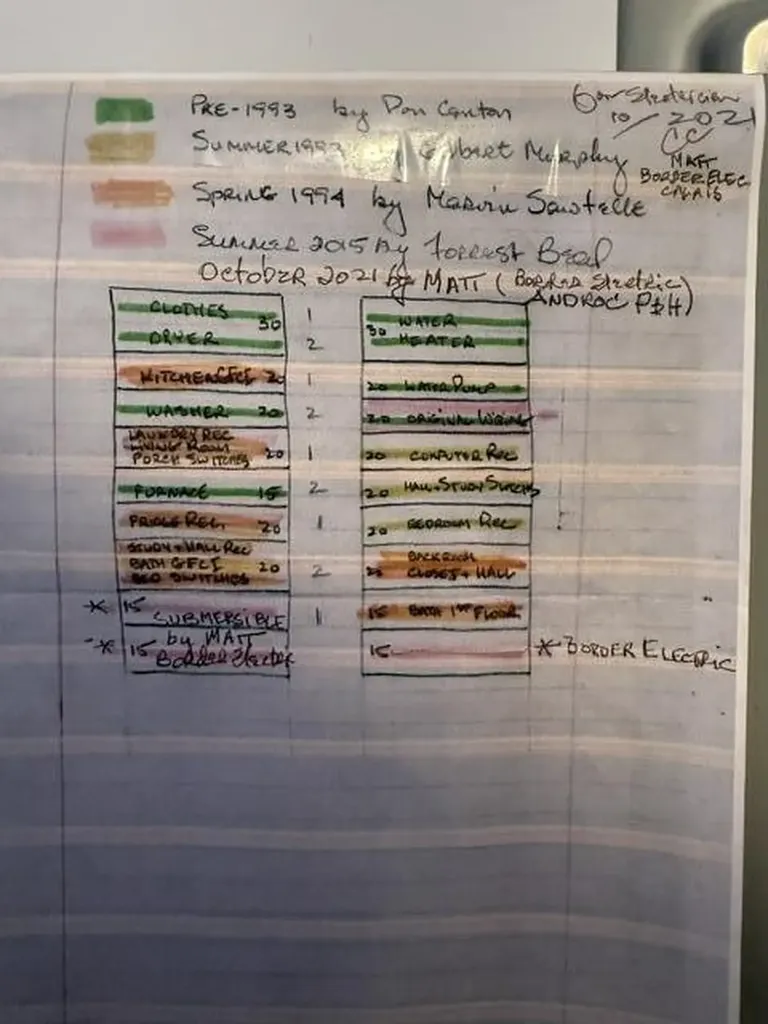 PRE-1993 by Don Canton
10/2021
MATT
BORDER ELEC
CALAIS
SUMMER 1993 Murphy
SPRING 1994 by Marvin Sawtelle
SUMMER 2015 By Forrest Beal
OCTOBER 2021 by MATT (BORDER Electric)
CLOTHES
DRYER 30
1
2
30 WATER
HEATER
KITCHEN GFCI 20
1
20 WATER PUMP
WASHER 20
2
20 ORIGINAL WIRING
LAUNDRY REC
LIVING ROOM
PORCH SWITCHES 20
1
20 COMPUTER REC
FURNACE 15
2
20 HALL + STUDY SWITCHES
FRIDGE REC. 20
1
20 BEDROOM REC
STUDY + HALL REC
BATH GFCI 20
BED SWITCHES
2
BACKROOM
CLOSET + HALL
* 15
SUBMERSIBLE
1
15 BATH 1ST FLOOR
* 15 by MATT
Border Electric
15
* BORDER ELECTRIC